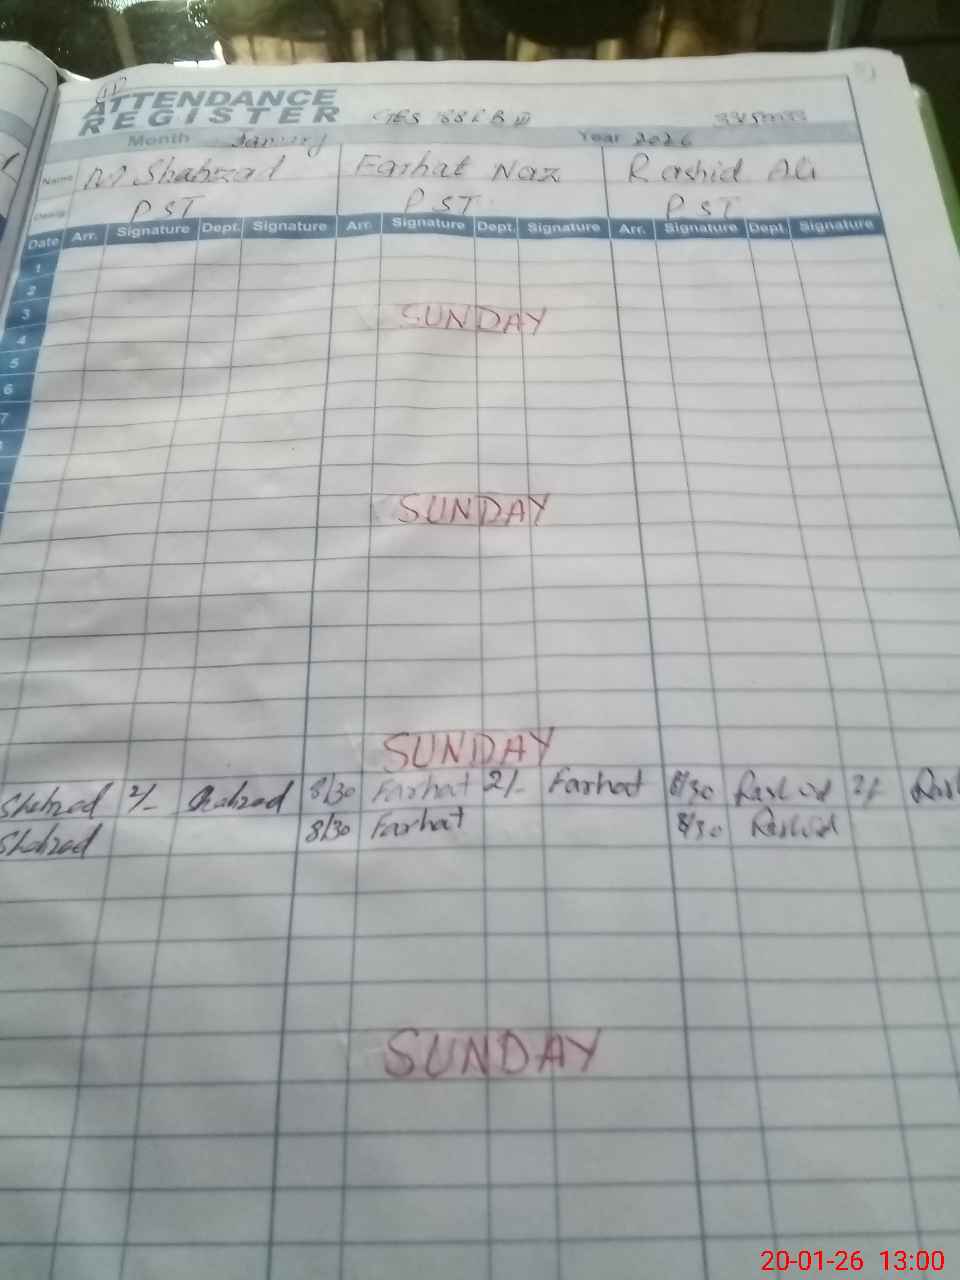 ATTENDANCE
REGISTER
Month January Year 2026
Name M Shahzad Farhat Naz Rashid Ali
Desig. PST PST PST
Date Arr. Signature Dept. Signature Arr. Signature Dept. Signature Arr. Signature Dept. Signature
1
2
3 SUNDAY
4
5
6
7
SUNDAY
SUNDAY
Shahzad 2/- Shahzad 8/30 Farhat 2/- Farhat 8/30 Rashid 2/-
Shahzad 8/30 Farhat 8/30 Rashid
SUNDAY
20-01-26 13:00